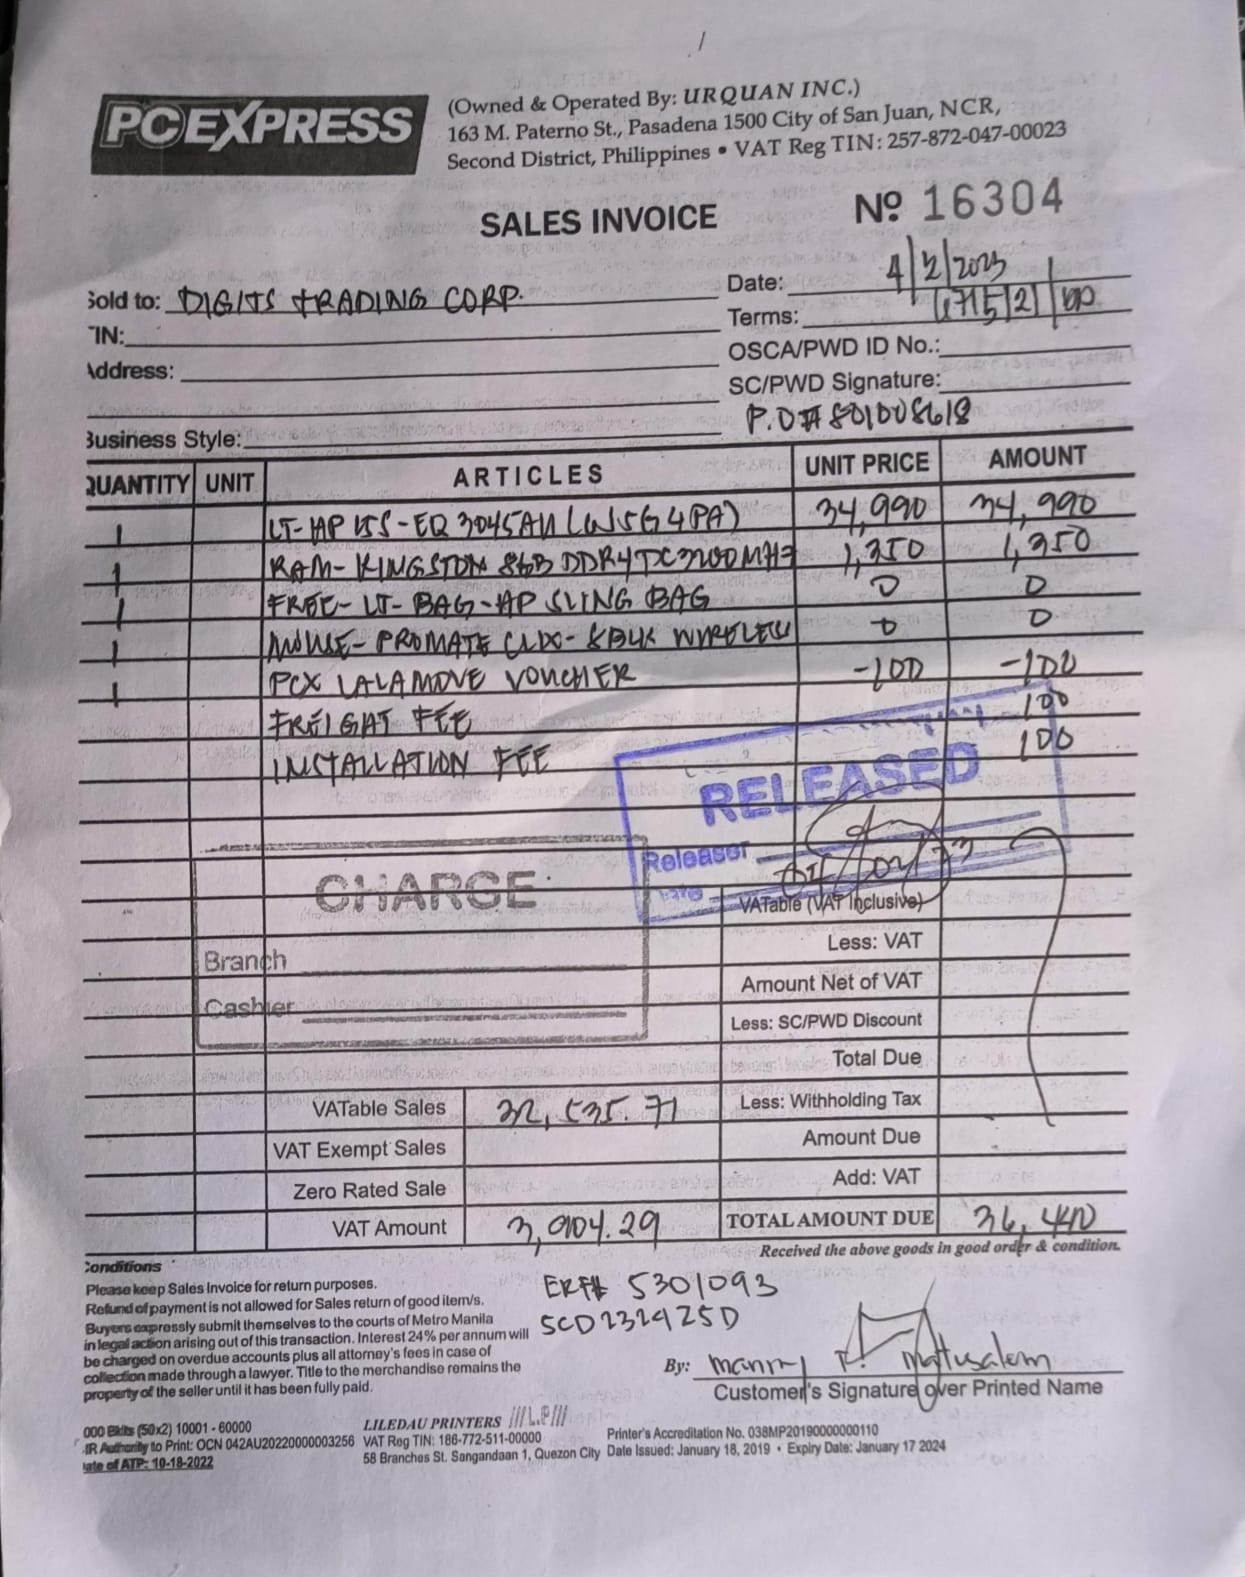 PCEXPRESS
(Owned & Operated By: URQUAN INC.)
163 M. Paterno St., Pasadena 1500 City of San Juan, NCR,
Second District, Philippines • VAT Reg TIN: 257-872-047-00023
SALES INVOICE
Nº 16304
Sold to: DIGITS TRADING CORP.
Date: 4/2/2023
TIN:
Terms:
Address:
OSCA/PWD ID No.:
SC/PWD Signature:
P.O# 801008618
Business Style:
QUANTITY UNIT ARTICLES UNIT PRICE AMOUNT
1 LT-HP 15S-EQ3045AU (W5G4PA) 34,990 34,990
1 RAM-KINGSTON 8GB DDR4 3200MHZ 1,350 1,350
1 FREE-LT-BAG-HP SLING BAG 0 0
1 MOUSE-PROMATE WIRELESS 0 0
1 PCX LALAMOVE VOUCHER -100 -100
FREIGHT FEE 100
INSTALLATION FEE 100
RELEASED
Releaser
CHARGE
VATable (VAT Inclusive)
Less: VAT
Branch
Amount Net of VAT
Cashier
Less: SC/PWD Discount
Total Due
VATable Sales 32,535.71 Less: Withholding Tax
VAT Exempt Sales Amount Due
Zero Rated Sale Add: VAT
VAT Amount 3,904.29 TOTAL AMOUNT DUE 36,440
Received the above goods in good order & condition.
Conditions
Please keep Sales Invoice for return purposes.
Refund of payment is not allowed for Sales return of good item/s.
Buyers expressly submit themselves to the courts of Metro Manila
in legal action arising out of this transaction. Interest 24% per annum will
be charged on overdue accounts plus all attorney's fees in case of
collection made through a lawyer. Title to the merchandise remains the
property of the seller until it has been fully paid.
ERF# 5301093
5CD232425D
By: Manny P. Mattusalem
Customer's Signature over Printed Name
000 Bklts (50x2) 10001 - 60000
BIR Authority to Print: OCN 042AU20220000003256
Date of ATP: 10-18-2022
LILEDAU PRINTERS ///L.P///
VAT Reg TIN: 186-772-511-00000
58 Branches St. Sangandaan 1, Quezon City
Printer's Accreditation No. 038MP20190000000110
Date Issued: January 18, 2019 • Expiry Date: January 17 2024